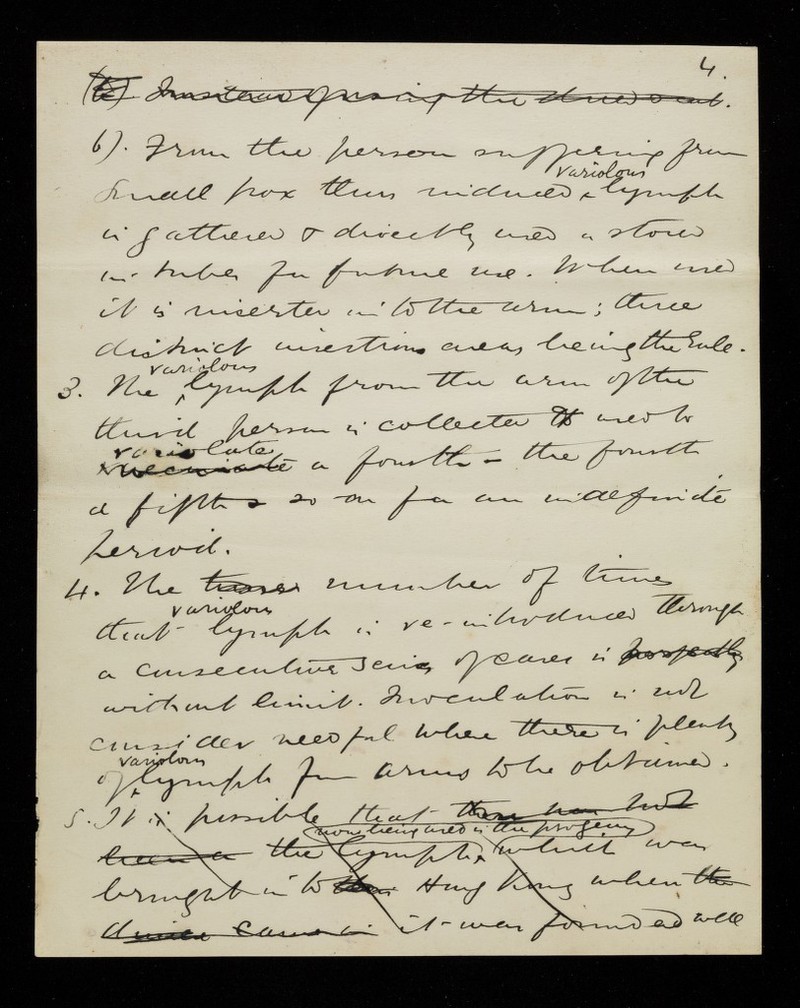 4.
(b) Instead of using the dried scab.
b). From the person suffering from
variolous
Small pox thus induced ‸ lymph
is gathered & directly used or stored
in tubes for future use. When used
it is inserted into the arm; three
distinct insertion areas being the Rule.
variolous
3. The ‸ lymph from the arm of the
third person is collected & used to
variolate
vaccinate a fourth - the fourth
a fifth & so on for an indefinite
period.
4. The number of times
variolous
that lymph is re-introduced through
a consecutive series of cases is
without limit. Inoculation is not
consider needful when there is plenty
variolous
of ‸ lymph from arms to be obtained.
5. It is possible that there has not
now being used is the progeny
been a the lymph ‸ which was
brought in to Hong Kong when the
it was founded well